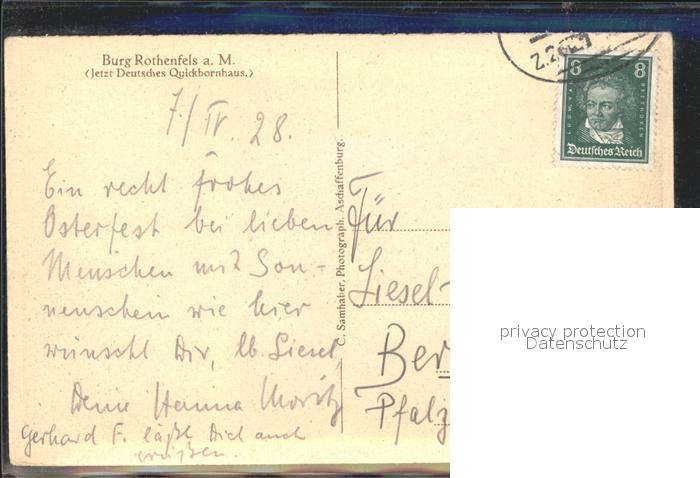 Burg Rothenfels a. M.
(Jetzt Deutsches Quickbornhaus.)
7/IV. 28.
Ein recht frohes
Osterfest bei lieben
Menschen mit Son-
nenschein wie hier
wünscht Dir, lb. Liesel,
Deine Hanna Moritz
Gerhard F. läßt Dich auch
grüßen.
C. Samhaber, Photograph. Aschaffenburg.
8 8
LUDW. VAN BEETHOVEN
Deutsches Reich
Für
Liesel
Ber
Pfalz
privacy protection
Datenschutz